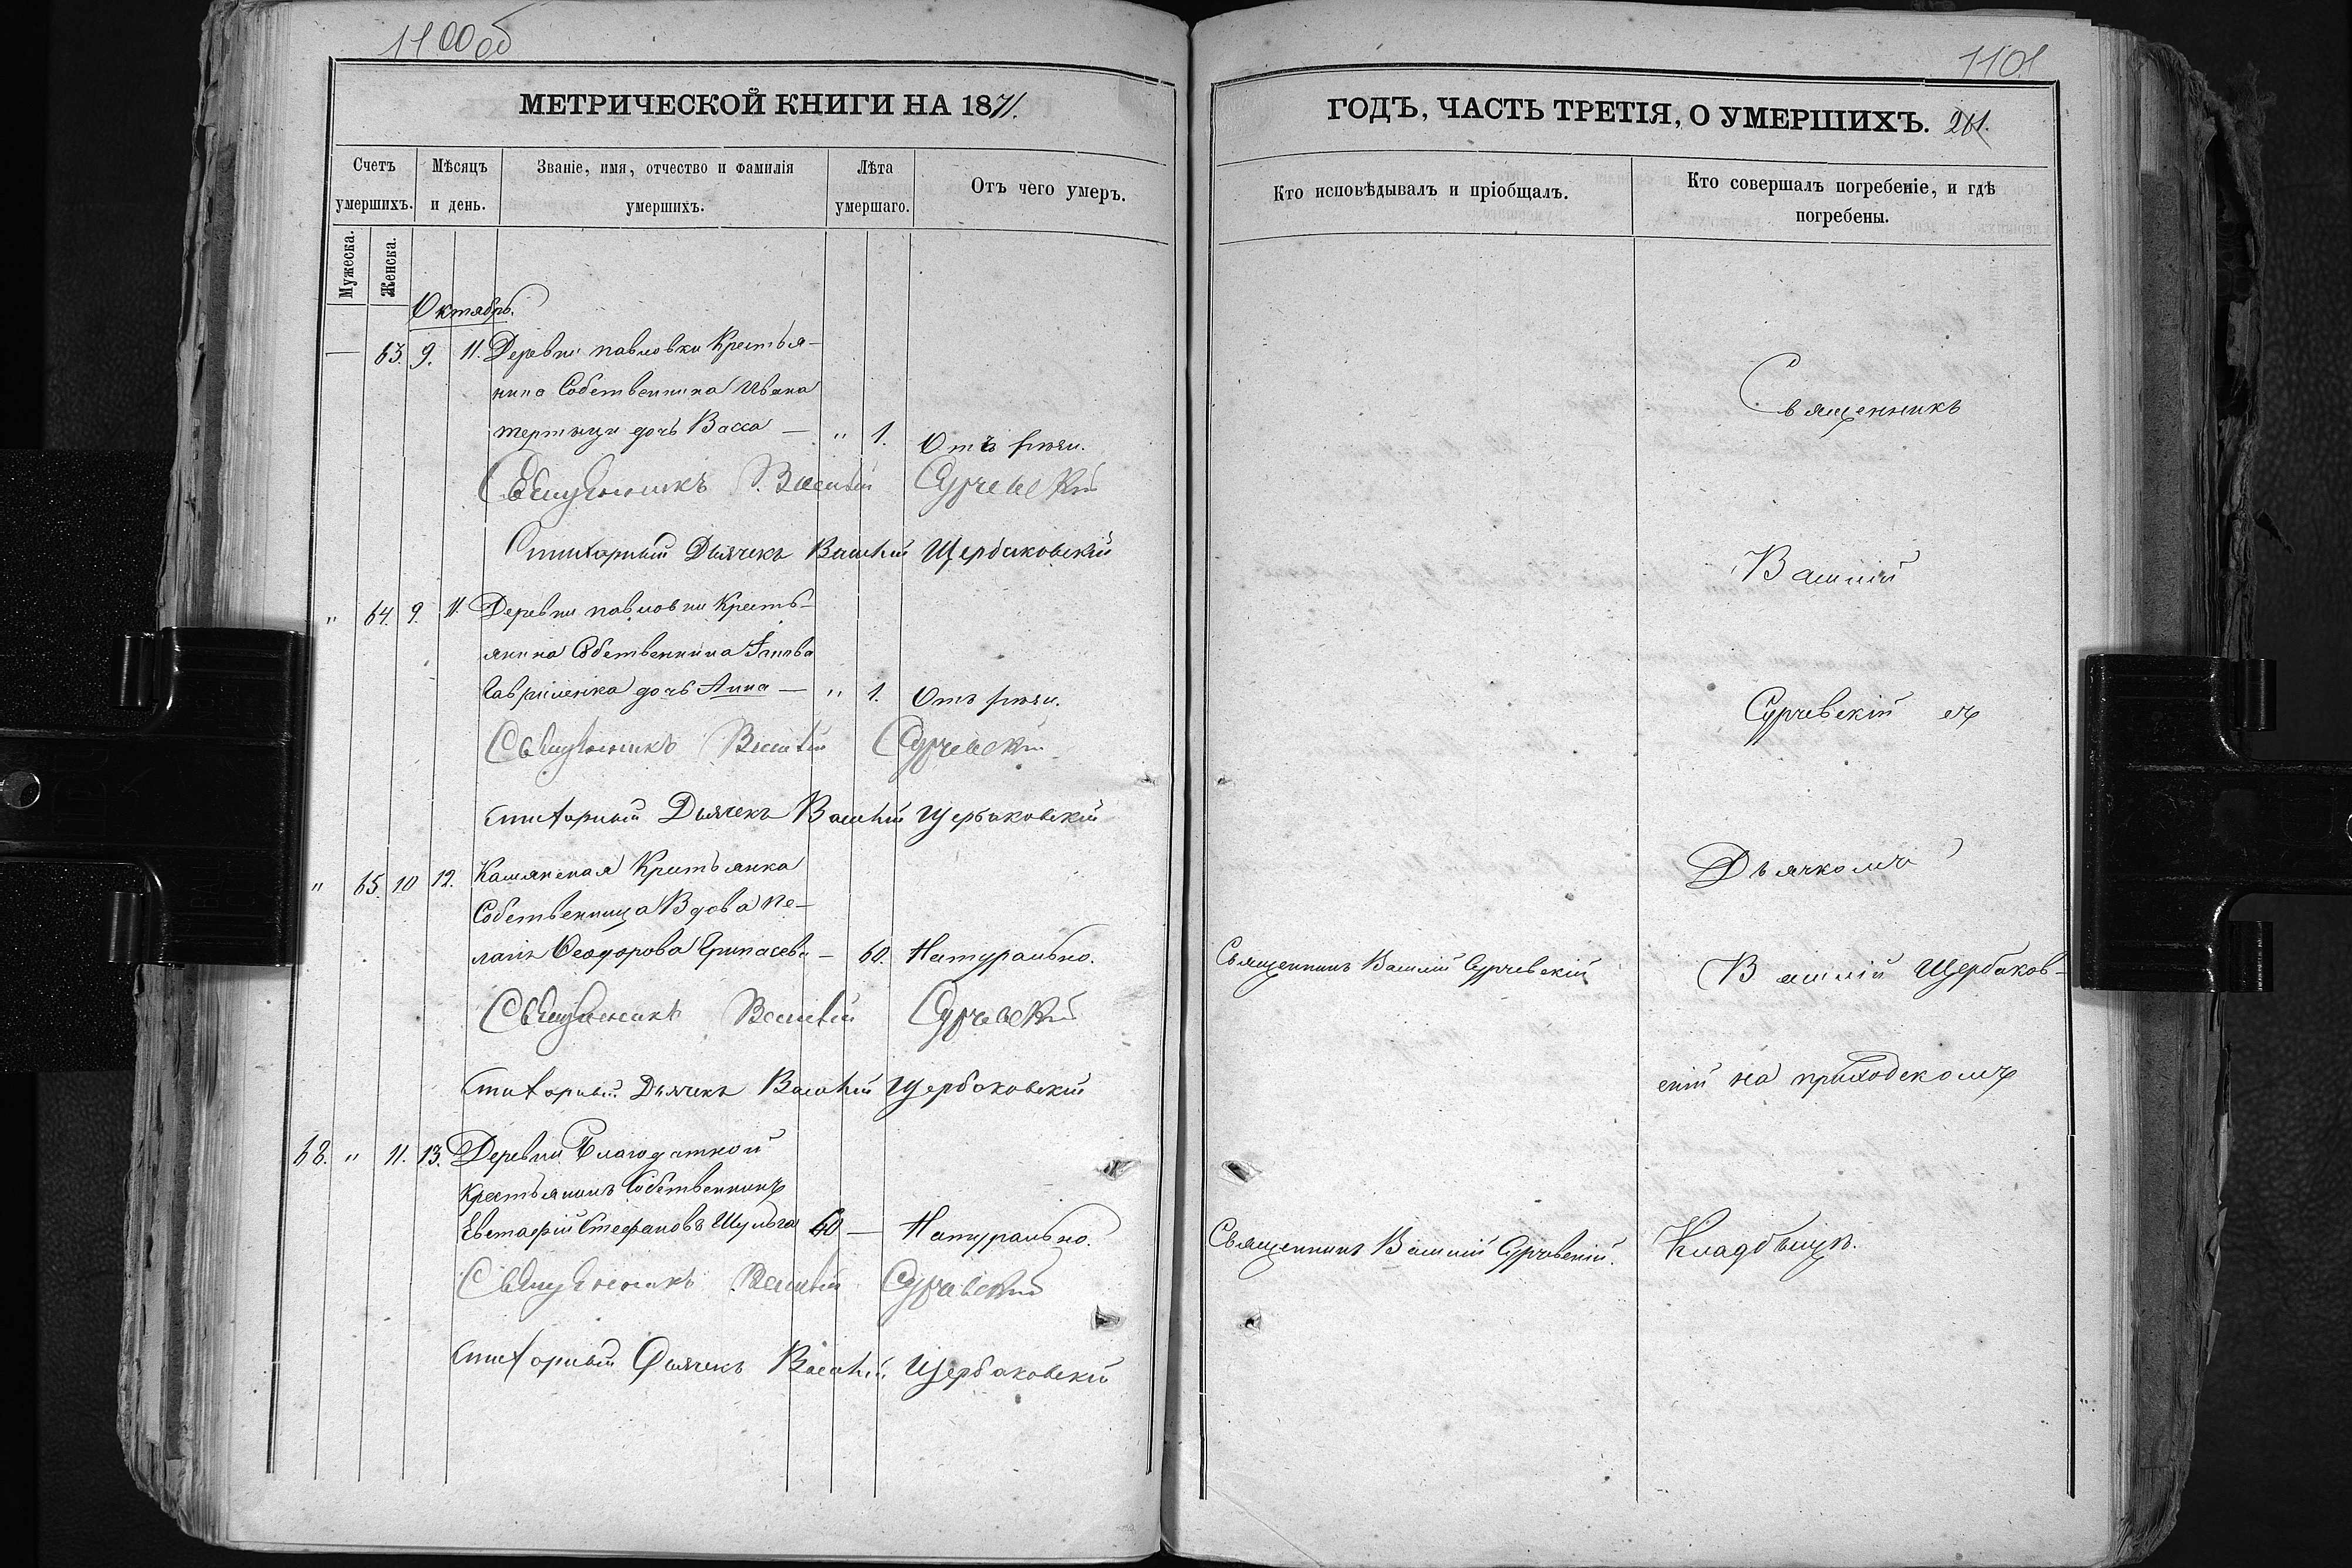 1100 об
1101
МЕТРИЧЕСКОЙ КНИГИ НА 1871.
ГОДЪ, ЧАСТЬ ТРЕТІЯ, О УМЕРШИХЪ. 261.
Счетъ умершихъ.
Мѣсяцъ и день.
Званіе, имя, отчество и фамилія умершихъ.
Лѣта умершаго.
Отъ чего умеръ.
Кто исповѣдывалъ и пріобщалъ.
Кто совершалъ погребеніе, и гдѣ погребены.
Мужеска.
Женска.
Октябрь.
— 63. 9. 11. Деревни павловки Крестья-
нина Собственника Ивана
дочь Васса — " 1. Отъ
Священникъ Василій Сурчевскій
Стихарный Дьячекъ Василій Щербаковскій
" 64. 9. 11. Деревни павловки Кресть-
янина Собственника
Гавриленка дочь Анна — " 1. Отъ
Священникъ Василій Сурчевскій
Стихарный Дьячекъ Василій Щербаковскій
" 65. 10 12. Крестьянка
Собственница Вдова Пе-
лагія Феодорова — 60. Натурально.
Священникъ Василій Сурчевскій
Священникъ Василій Сурчевскій
Стихарный Дьячекъ Василій Щербаковскій
68. " 11. 13. Деревни Благодатной
Крестьянинъ Собственникъ
Евстафій Стефановъ Шульга 60 — Натурально.
Священникъ Василій Сурчевскій.
Священникъ Василій Сурчевскій
Стихарный Дьячекъ Василій Щербаковскій
Священникъ
Василій
Сурчевскій съ
Дьячкомъ
Василій Щербаков-
скій на приходскомъ
Кладбищѣ.